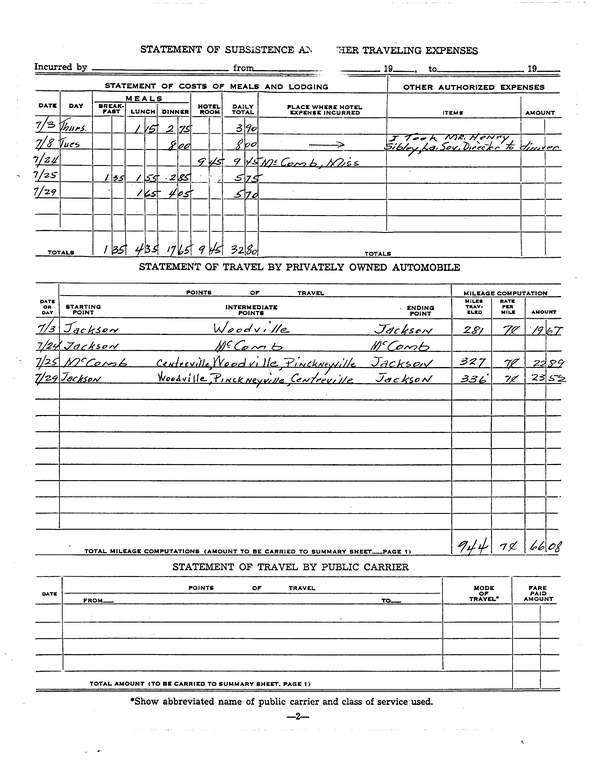 STATEMENT OF SUBSISTENCE AN HER TRAVELING EXPENSES
Incurred by from 19 , to 19
STATEMENT OF COSTS OF MEALS AND LODGING OTHER AUTHORIZED EXPENSES
DATE DAY MEALS BREAK-FAST LUNCH DINNER HOTEL ROOM DAILY TOTAL PLACE WHERE HOTEL EXPENSE INCURRED ITEMS AMOUNT
7/3 Thurs. 1 15 2 75 3 90
7/8 Tues 8 00 8 00 → I Took Mr. Henry
Sibley, La. Sov. Director to dinner
7/24 9 45 9 45 McComb, Miss
7/25 1 35 1 55 2 85 5 75
7/29 1 65 4 05 5 70
TOTALS 1 35 4 35 17 65 9 45 32 80 TOTALS
STATEMENT OF TRAVEL BY PRIVATELY OWNED AUTOMOBILE
POINTS OF TRAVEL MILEAGE COMPUTATION
DATE OR DAY STARTING POINT INTERMEDIATE POINTS ENDING POINT MILES TRAV-ELED RATE PER MILE AMOUNT
7/3 Jackson Woodville Jackson 281 7¢ 19 67
7/24 Jackson McComb McComb
7/25 McComb Centreville, Woodville, Pinckneyville Jackson 327 7¢ 22 89
7/29 Jackson Woodville, Pinckneyville, Centreville Jackson 336 7¢ 23 52
TOTAL MILEAGE COMPUTATIONS (AMOUNT TO BE CARRIED TO SUMMARY SHEET PAGE 1) 944 7¢ 66 08
STATEMENT OF TRAVEL BY PUBLIC CARRIER
DATE POINTS OF TRAVEL MODE OF TRAVEL* FARE PAID AMOUNT
FROM TO
TOTAL AMOUNT (TO BE CARRIED TO SUMMARY SHEET, PAGE 1)
*Show abbreviated name of public carrier and class of service used.
—2—